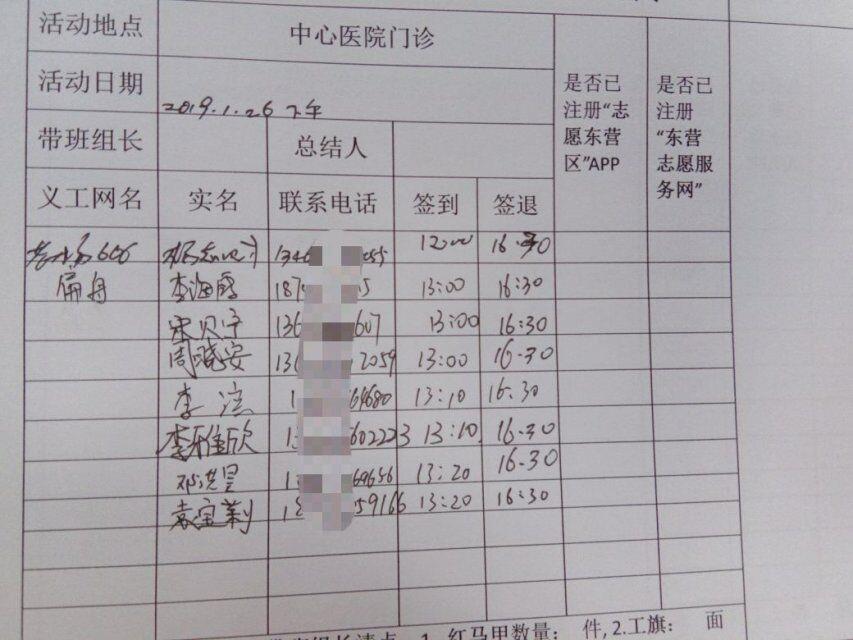 活动地点 中心医院门诊
活动日期 2019.1.26 下午
带班组长 总结人
是否已注册“志愿东营区”APP
是否已注册“东营志愿服务网”
义工网名 实名 联系电话 签到 签退
606 134 055 12:00 16:30
扁舟 李海霞 187 5 13:00 16:30
宋贝宁 136 607 13:00 16:30
周晓安 136 2059 13:00 16:30
李 1 64680 13:10 16:30
李雅欣 1 602223 13:10 16:30
邓洪昊 1 69656 13:20 16:30
袁宝莉 18 59166 13:20 16:30
红马甲数量: 件, 2.工旗: 面